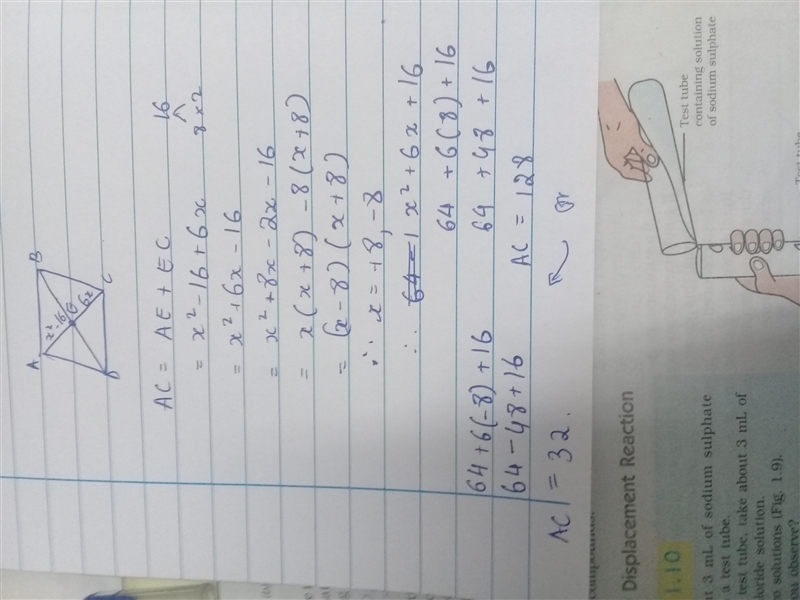 A
B
x²-16
E
6x
C
D
AC = AE + EC
16
8 x 2
= x² - 16 + 6x
= x² + 6x - 16
= x² + 8x - 2x - 16
= x(x+8) - 8(x+8)
= (x-8)(x+8)
∴ x = +8, -8
∴ x² + 6x + 16
64 + 6(-8) + 16
64 + 6(8) + 16
64 - 48 + 16
64 + 48 + 16
AC = 128
or
AC = 32.
Displacement Reaction
1.10
t 3 mL of sodium sulphate
a test tube.
test tube, take about 3 mL of
loride solution.
o solutions (Fig. 1.9).
ou observe?
Test tube
containing solution
of sodium sulphate
Test tube